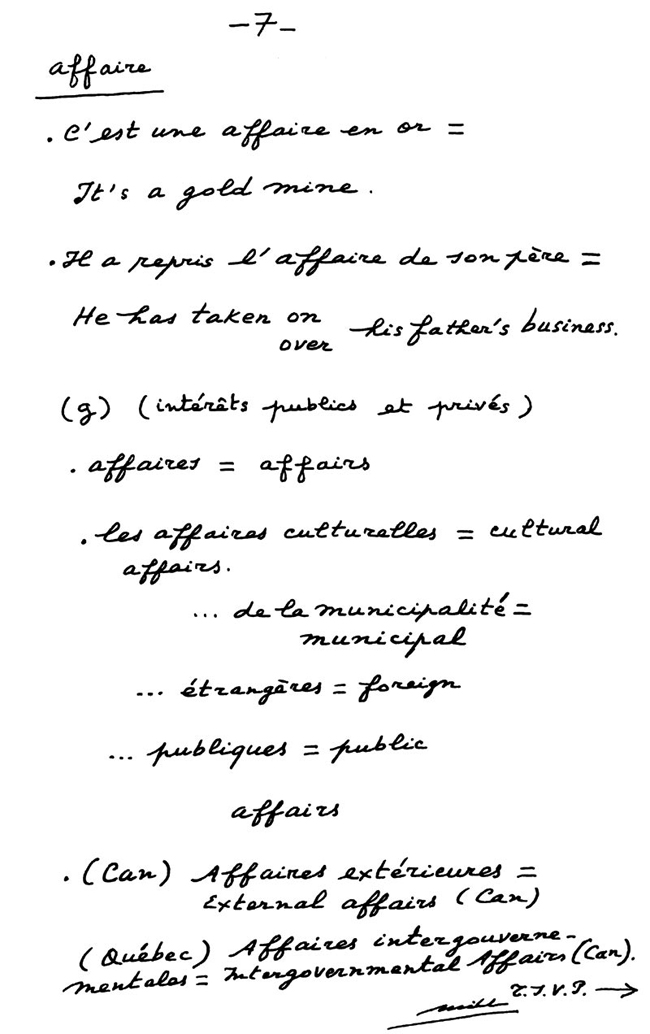 -7-
affaire
. C'est une affaire en or =
It's a gold mine.
. Il a repris l'affaire de son père =
He has taken on his father's business.
over
(g) (intérêts publics et privés)
. affaires = affairs
. les affaires culturelles = cultural
affairs.
... de la municipalité =
municipal
... étrangères = foreign
... publiques = public
affairs
. (Can) Affaires extérieures =
External affairs (Can)
(Québec) Affaires intergouverne-
mentales = Intergovernmental Affairs (Can).
T.S.V.P. →